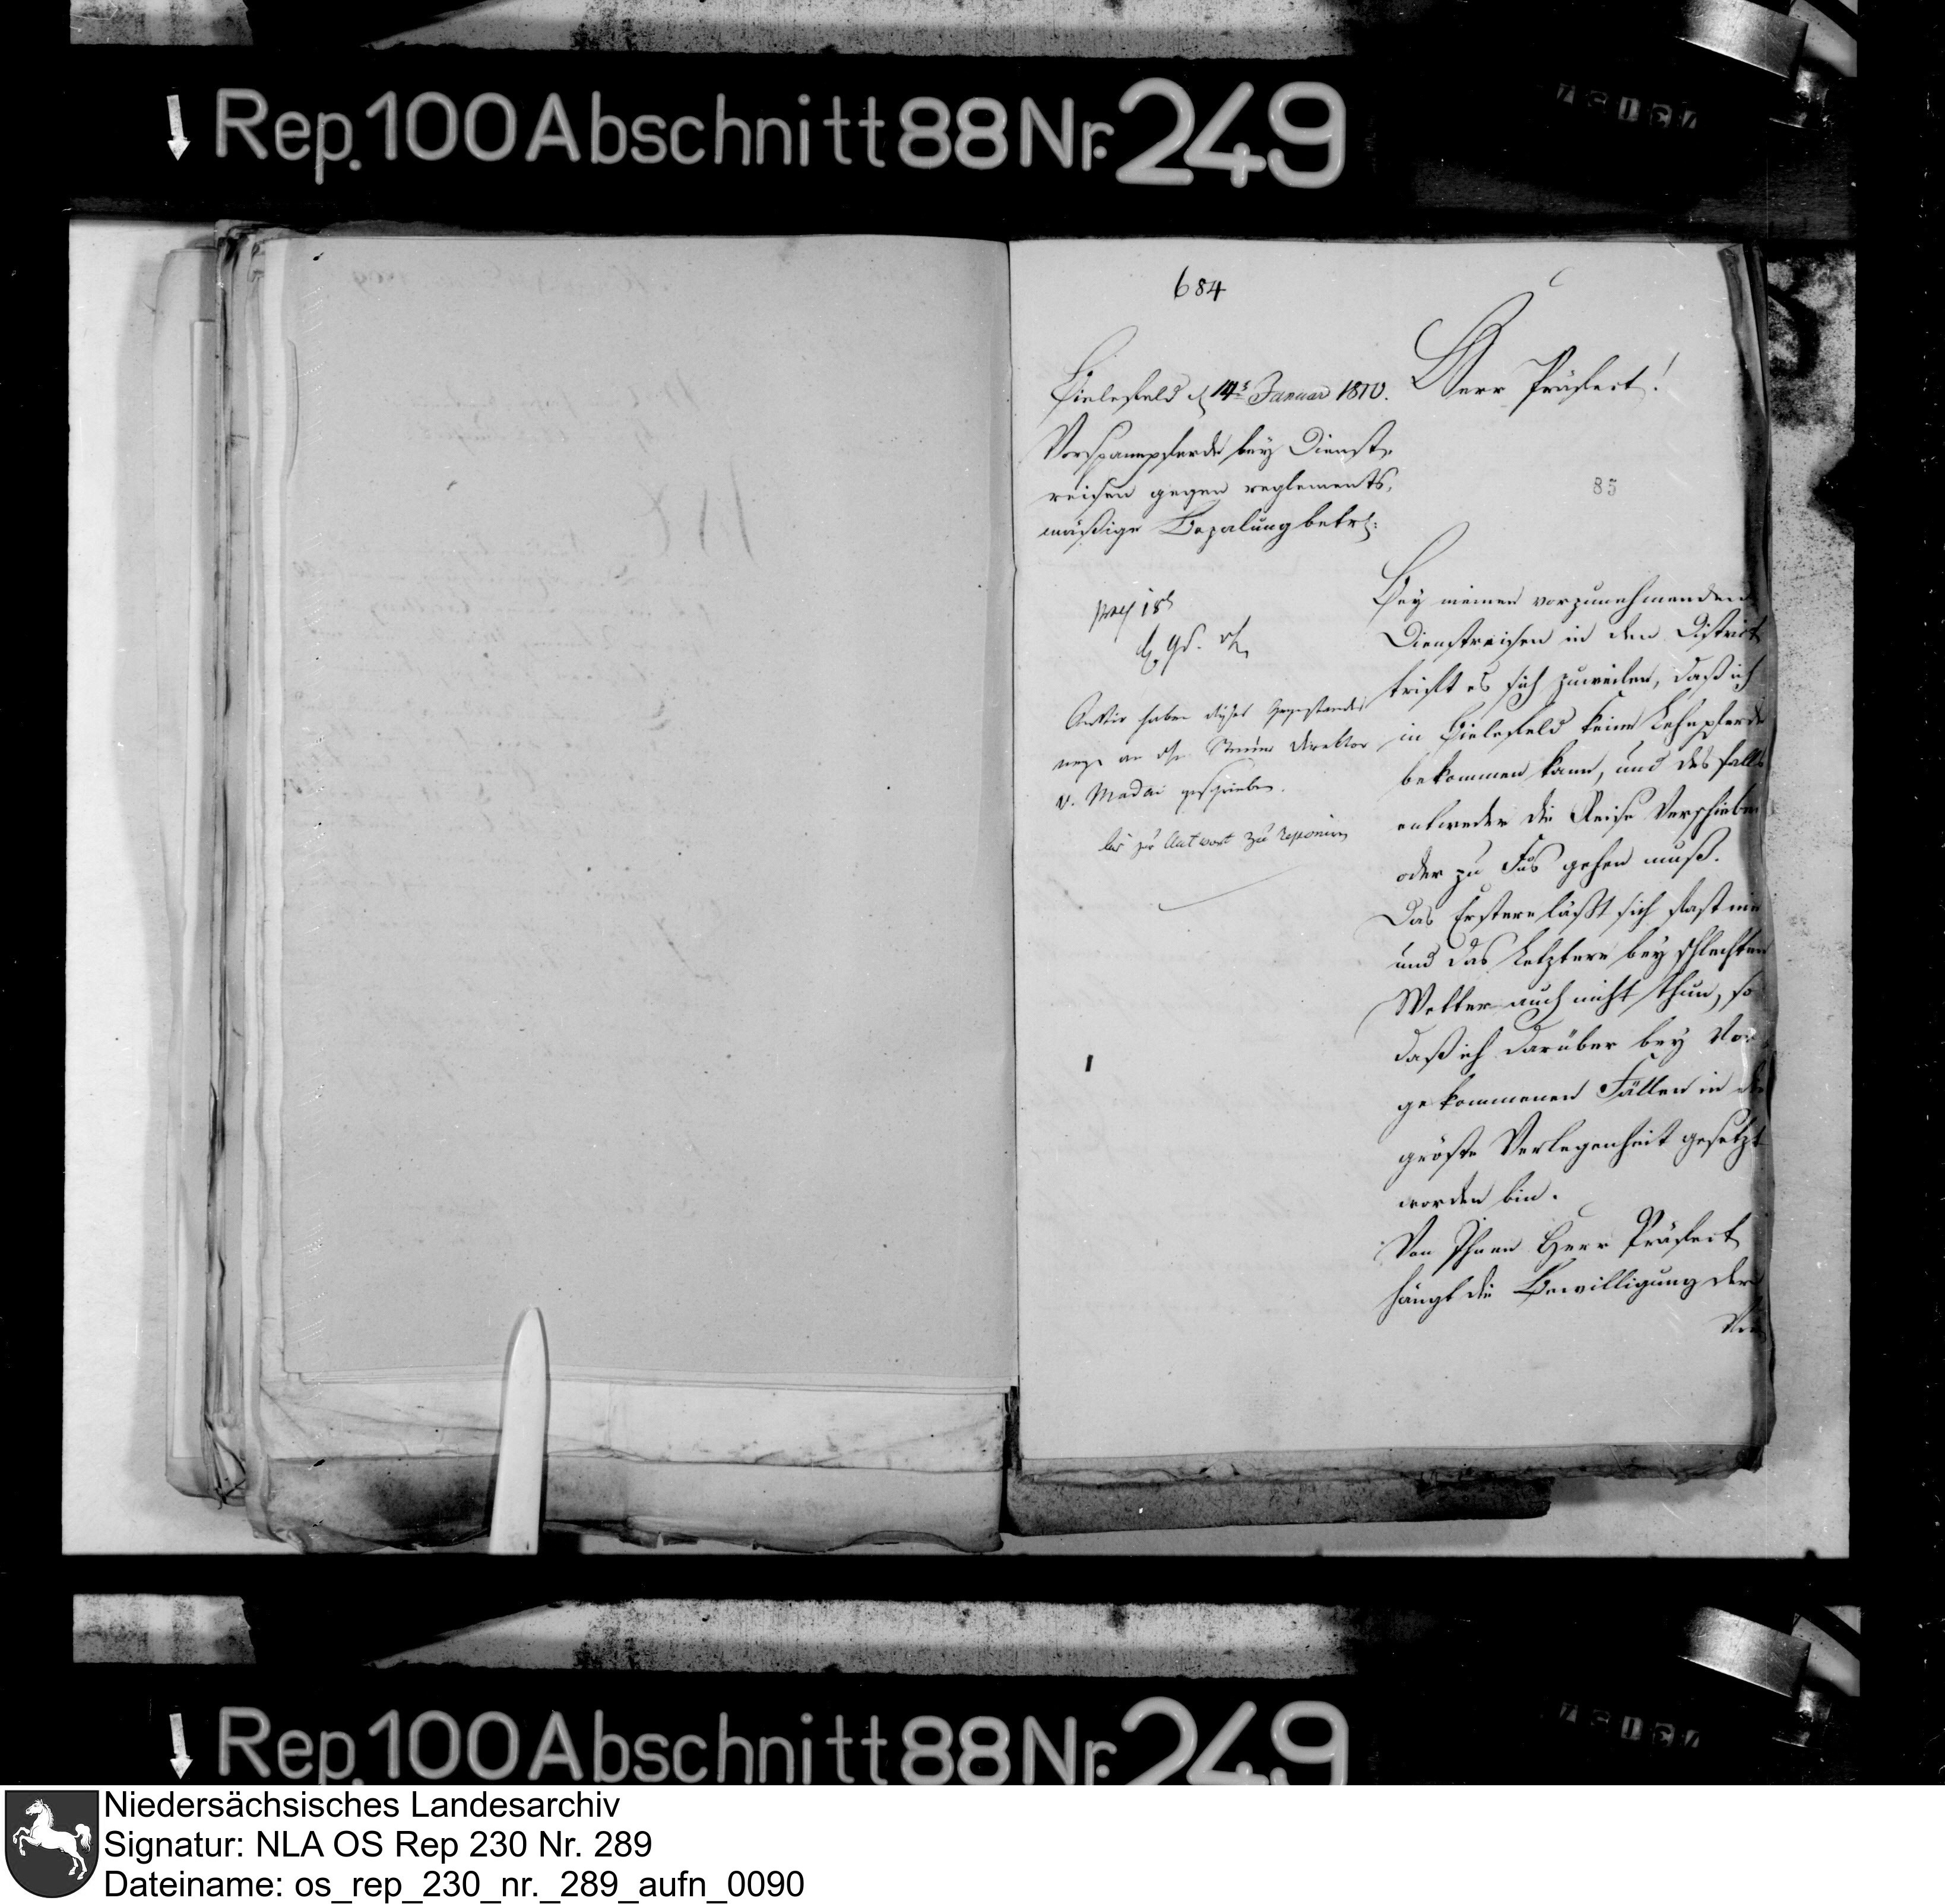 Rep. 100 Abschnitt 88 Nr. 249
684
Bielefeld d 14ᵗ Januar 1810.
Vorspannpferde bey Dienst-
reisen gegen reglements-
mäßige Bezalung betr:
Herr Präfect!
85
Bey meinen vorzunehmenden
Dienstreisen in den District
trifft es sich zuweilen, daß ich
in Bielefeld keine Lehnpferde
bekommen kann, und desfalls
entweder die Reise verschieben
oder zu Fus gehen muß.
Das Erstere läßt sich fast nie
und das Letztere bey schlechten
Wetter auch nicht thun, so
daß ich darüber bey vor-
gekommenen Fällen in die
gröste Verlegenheit gesetzt
worden bin.
Von Ihnen Herr Präfect
hängt die Bewilligung der
haben dieses Gegenstandes
wegen an den Steuer Direktor
v. Madai geschrieben.
bis zur Antwort zu reponiren
Rep. 100 Abschnitt 88 Nr. 249
Niedersächsisches Landesarchiv
Signatur: NLA OS Rep 230 Nr. 289
Dateiname: os_rep_230_nr._289_aufn_0090